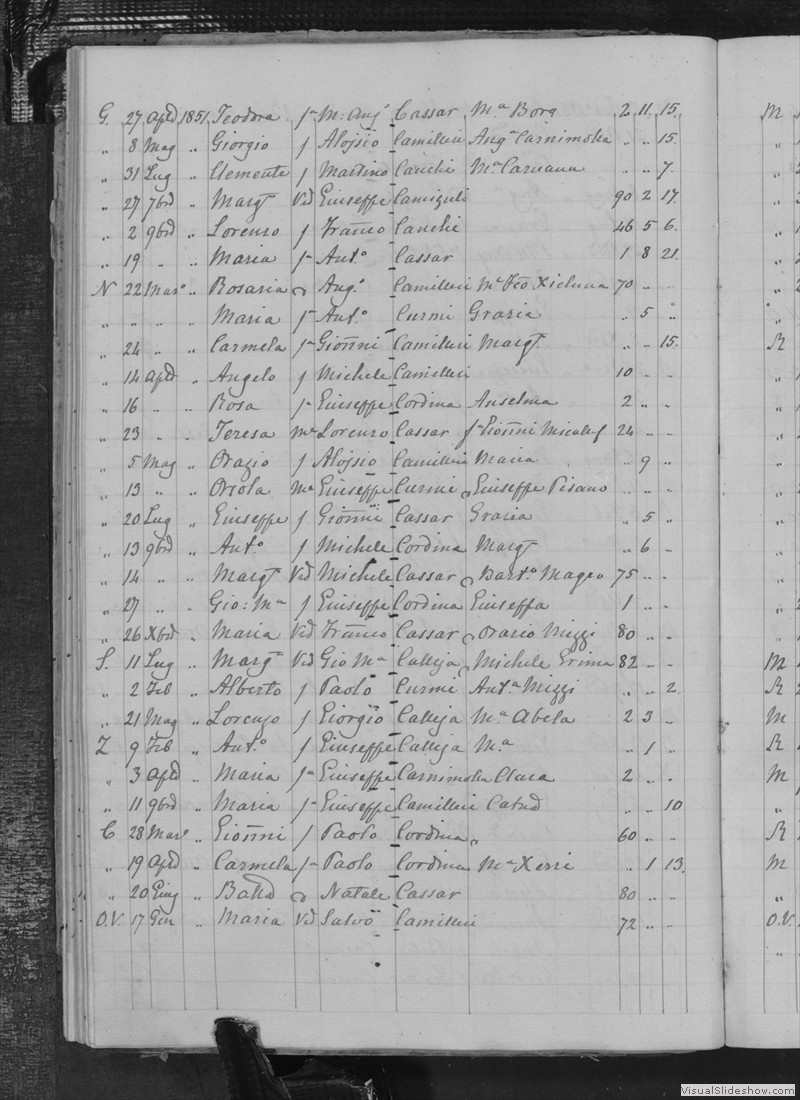 G. 27 Aple 1851 Teodora fa M: Ango Cassar Ma Borg 2 11 15. M
" 8 Mag " Giorgio f Aloisio Camilleri Anga Carnimolla " " 15.
" 31 Lug " Clemente f Martino Cauchi Ma Caruana " " 7.
" 27 7bre " Margta Vid Giuseppe Camizuli 90 2 17.
" 2 9bre " Lorenzo f Franco Cauchi 46 5 6.
" 19 " " Maria fa Anto. Cassar 1 8 21.
N 22 Mar. " Rosaria Ango. Camilleri Xicluna 70 " "
" " " " Maria fa Anto. Curmi Grazia " 5 "
" 24 " " Carmela fa Gionni Camilleri Margta. " " 15. R
" 14 Aple " Angelo f Michele Camilleri 10 " "
" 16 " " Rosa fa Giuseppe Cordina Anselma 2 " "
" 23 " " Teresa me Lorenzo Cassar fa Gionni Micallef 24 " "
" 5 Mag " Orazio f Aloisio Camilleri Maria " 9 "
" 13 " " Orsola me Giuseppe Curmi Giuseppe Pisano " " "
" 20 Lug " Giuseppe f Gionni Cassar Grazia " 5 "
" 13 9bre " Anto. f Michele Cordina Margta " 6 "
" 14 " " Margta Vid Michele Cassar Barto. Magro 75 " "
" 27 " " Gio: Ma f Giuseppe Cordina Giuseppa 1 " "
" 26 Xbre " Maria Vid Franco Cassar Orazio Mizzi 80 " "
S. 11 Lug " Margta Vid Gio Ma Calleja Michele Grima 82 " " M
" 2 Feb " Alberto f Paolo Curmi Anta Mizzi " " 2. R
" 21 Mag " Lorenzo f Giorgio Calleja Ma Abela 2 3 " M
Z 9 Feb " Anto. f Giuseppe Calleja Ma " 1 " R
" 3 Aple " Maria fa Giuseppe Carnimolla Clara 2 " " M
" 11 9bre " Maria fa Giuseppe Camilleri Catad " " 10 "
C 28 Mar. " Gionni f Paolo Cordina 60 " " R
" 19 Aple " Carmela fa Paolo Cordina Ma Xerri " 1 13. M
" 20 Giug " Natale Cassar 80 " " "
O.V. 17 Gen " Maria Vid Salvo Camilleri 72 " " O.V.
VisualSlideshow.com